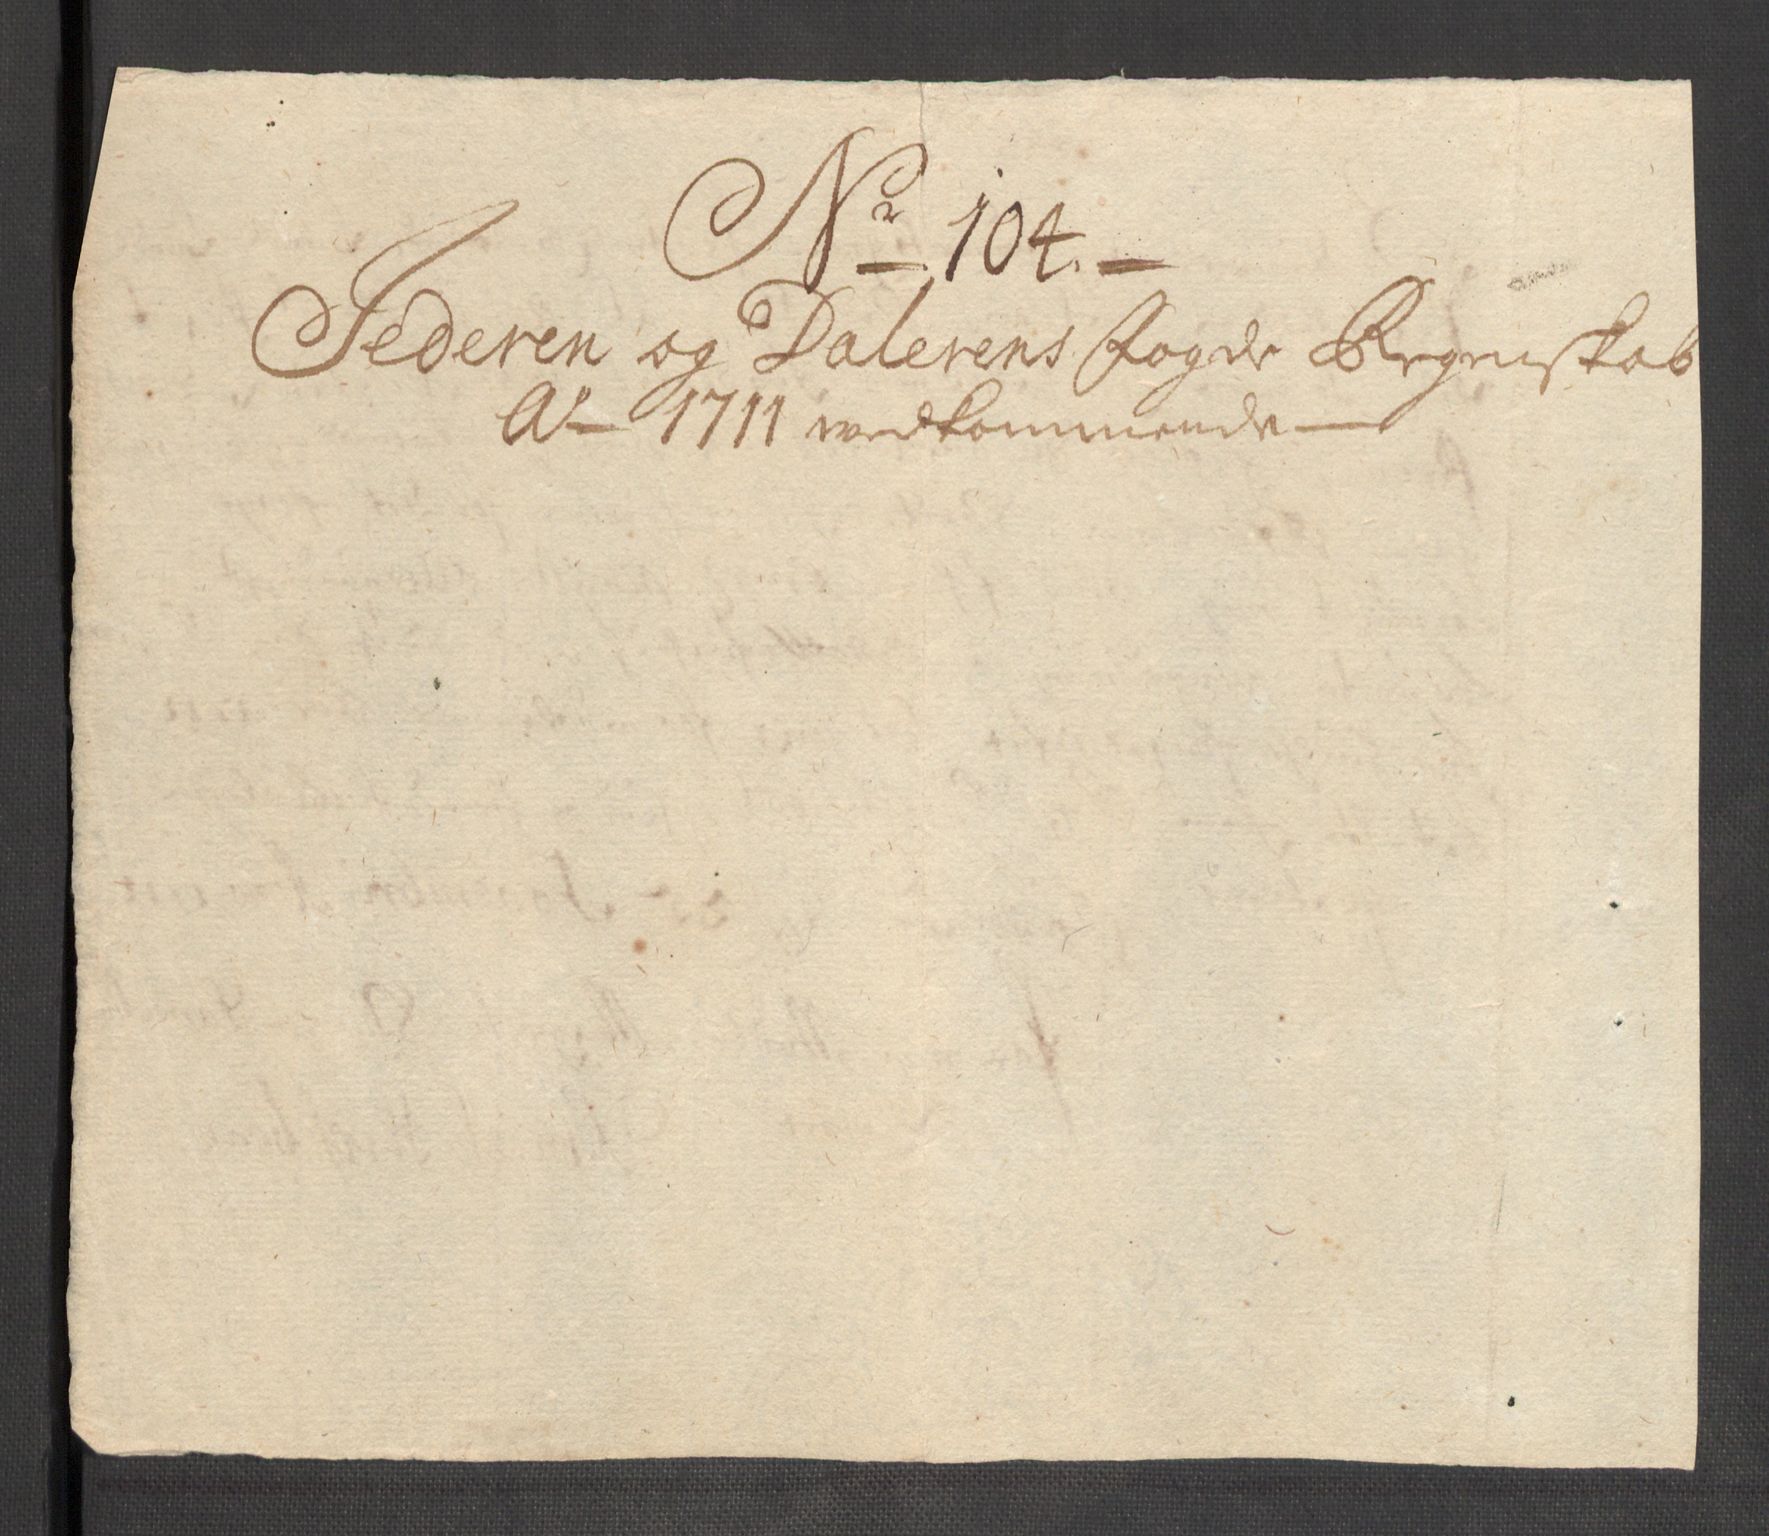 No 104.
Jederen og Dalerens fogde Regenskab
Ao 1711 vedkommende